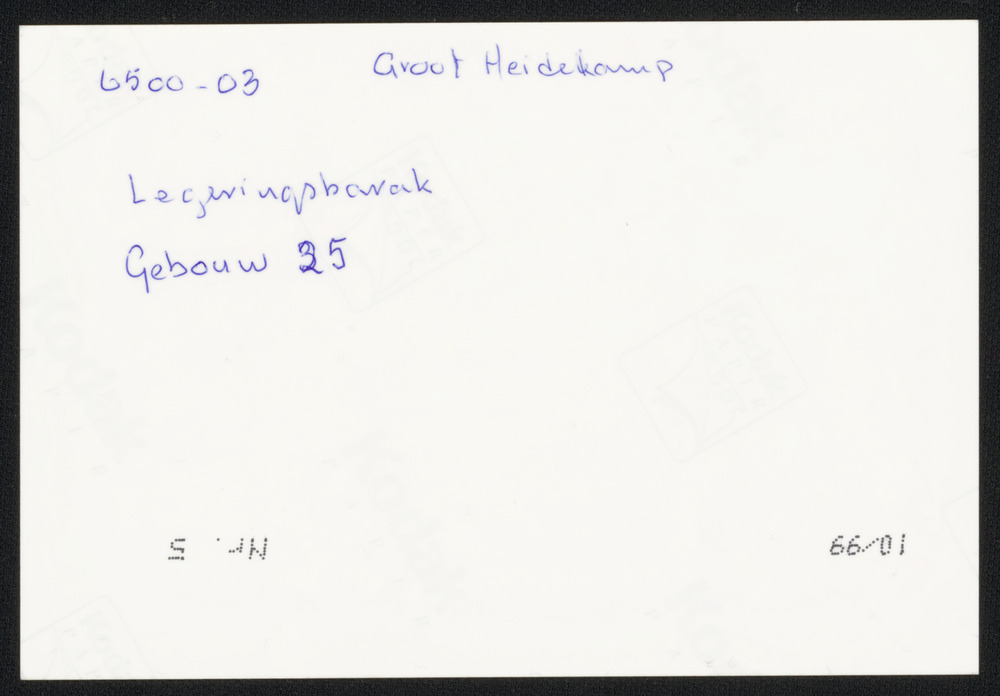 6500-03
Groot Heidekamp
Legeringsbarak
Gebouw 35
Nr. 5
10/99